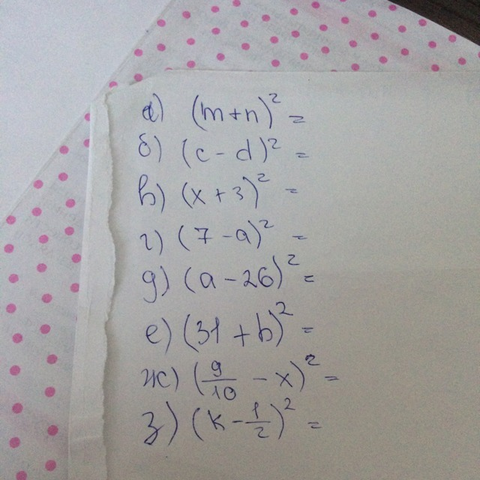 а) (m+n)² =
б) (c-d)² =
в) (x+3)² =
г) (7-a)² =
д) (a-26)² =
е) (31+b)² =
ж) (9/10-x)² =
з) (k-1/2)² =